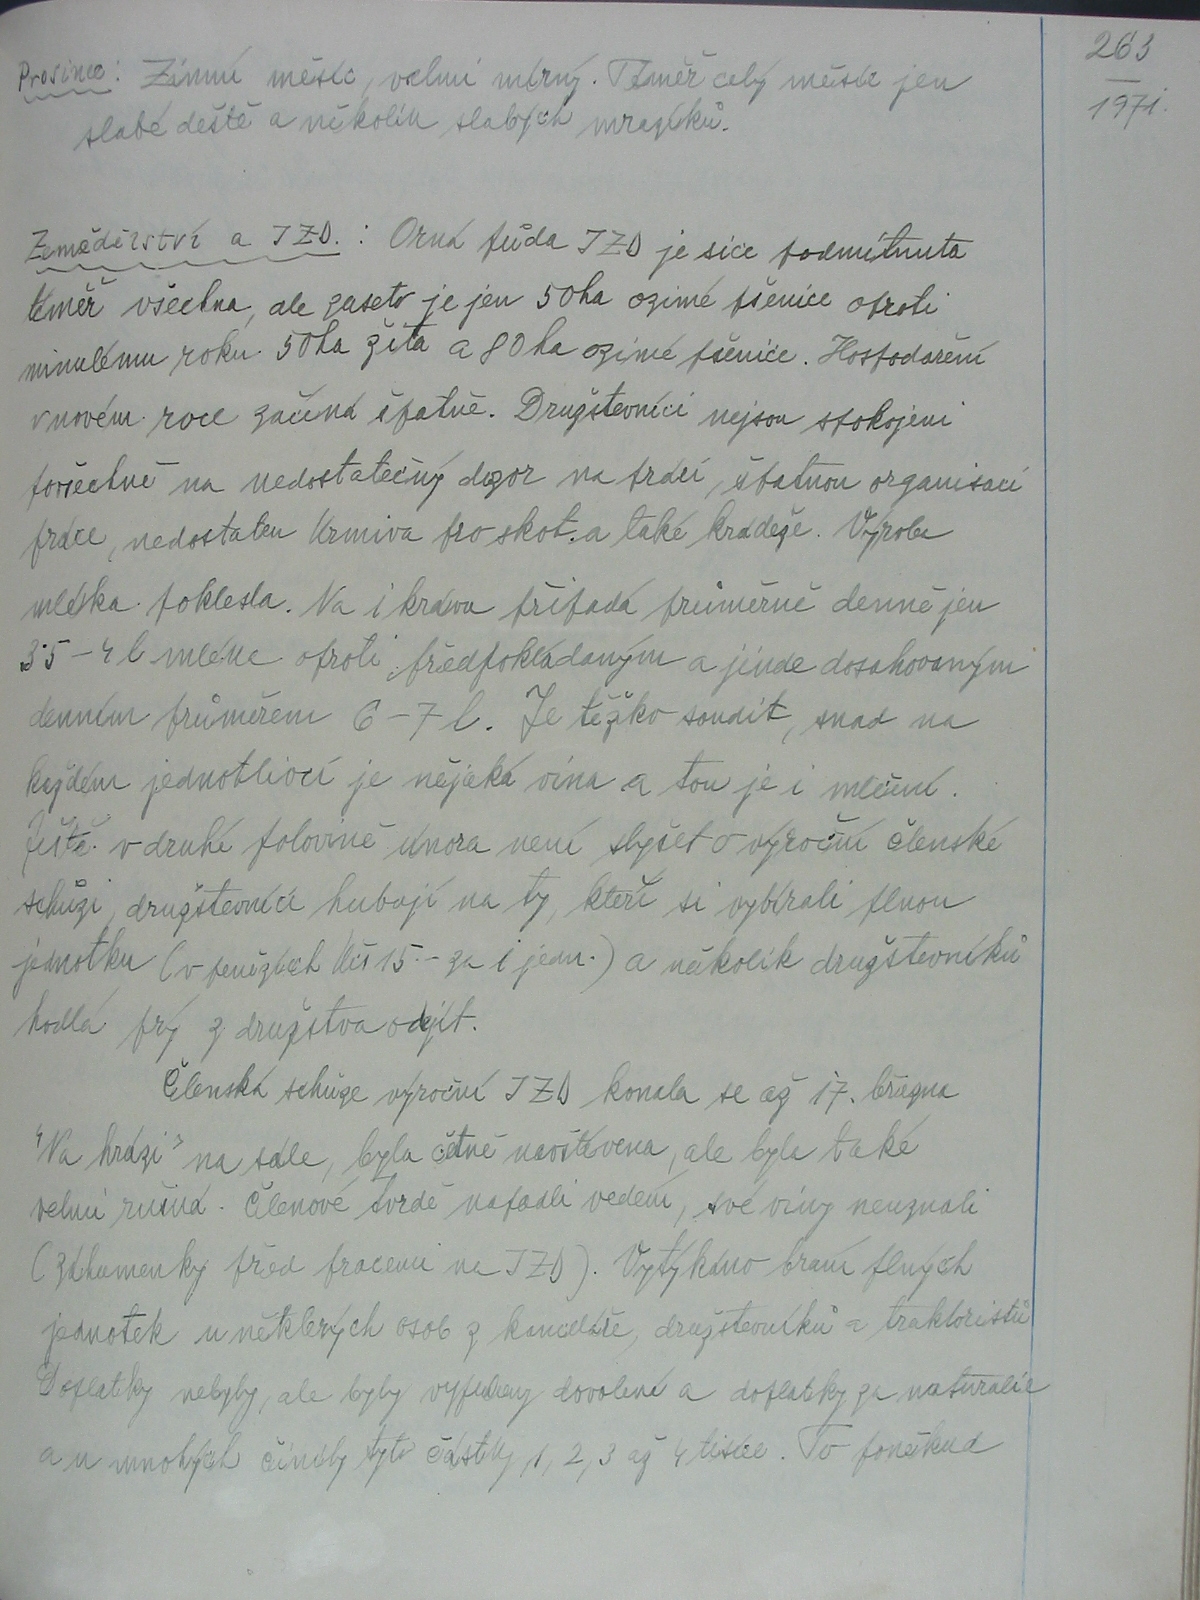 263
1971.
Prosinec: Zimní měsíc, velmi mírný. Téměř celý měsíc jen
slabé deště a několik slabých mrazíků.
Zemědělství a JZD. : Orná půda JZD je sice podmítnuta
téměř všechna, ale zaseto je jen 50 ha ozimé pšenice oproti
minulému roku 50 ha žita a 80 ha ozimé pšenice. Hospodaření
v novém roce začíná špatně. Družstevníci nejsou spokojeni
povšechně na nedostatečný dozor na práci, špatnou organisaci
práce, nedostatek krmiva pro skot a také krádeže. Výroba
mléka poklesla. Na 1 krávu připadá průměrně denně jen
3·5 – 4 l mléka oproti předpokládaným a jinde dosahovaným
denním průměrem 6 – 7 l. Je těžko soudit, snad na
každém jednotlivci je nějaká vina a tou je i mlčení.
Ještě v druhé polovině února není slyšet o výroční členské
schůzi, družstevníci hubují na ty, kteří si vybírali plnou
jednotku (v penězích Kčs 15.- za 1 jedn.) a několik družstevníků
hodlá prý z družstva odejít.
Členská schůze výroční JZD konala se až 17. března
"Na hrázi" na sále, byla četně navštívena, ale byla také
velmi rušná. Členové tvrdě napadli vedení, své viny neuznali
(záhumenky před pracemi na JZD). Vytýkáno braní plných
jednotek u některých osob z kanceláře, družstevníků a traktoristů
Doplatky nebyly, ale byly vypláceny dovolené a doplatky za naturalie
a u mnohých činily tyto částky 1, 2, 3 až 4 tisíce. To poněkud